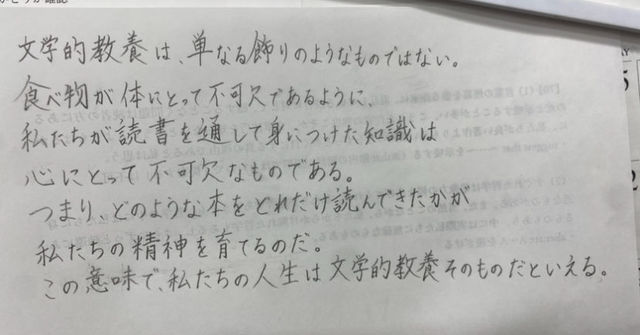 文学的教養は、単なる飾りのようなものではない。
食べ物が体にとって不可欠であるように、
私たちが読書を通して身につけた知識は
心にとって不可欠なものである。
つまり、どのような本をどれだけ読んできたかが
私たちの精神を育てるのだ。
この意味で、私たちの人生は文学的教養そのものだといえる。